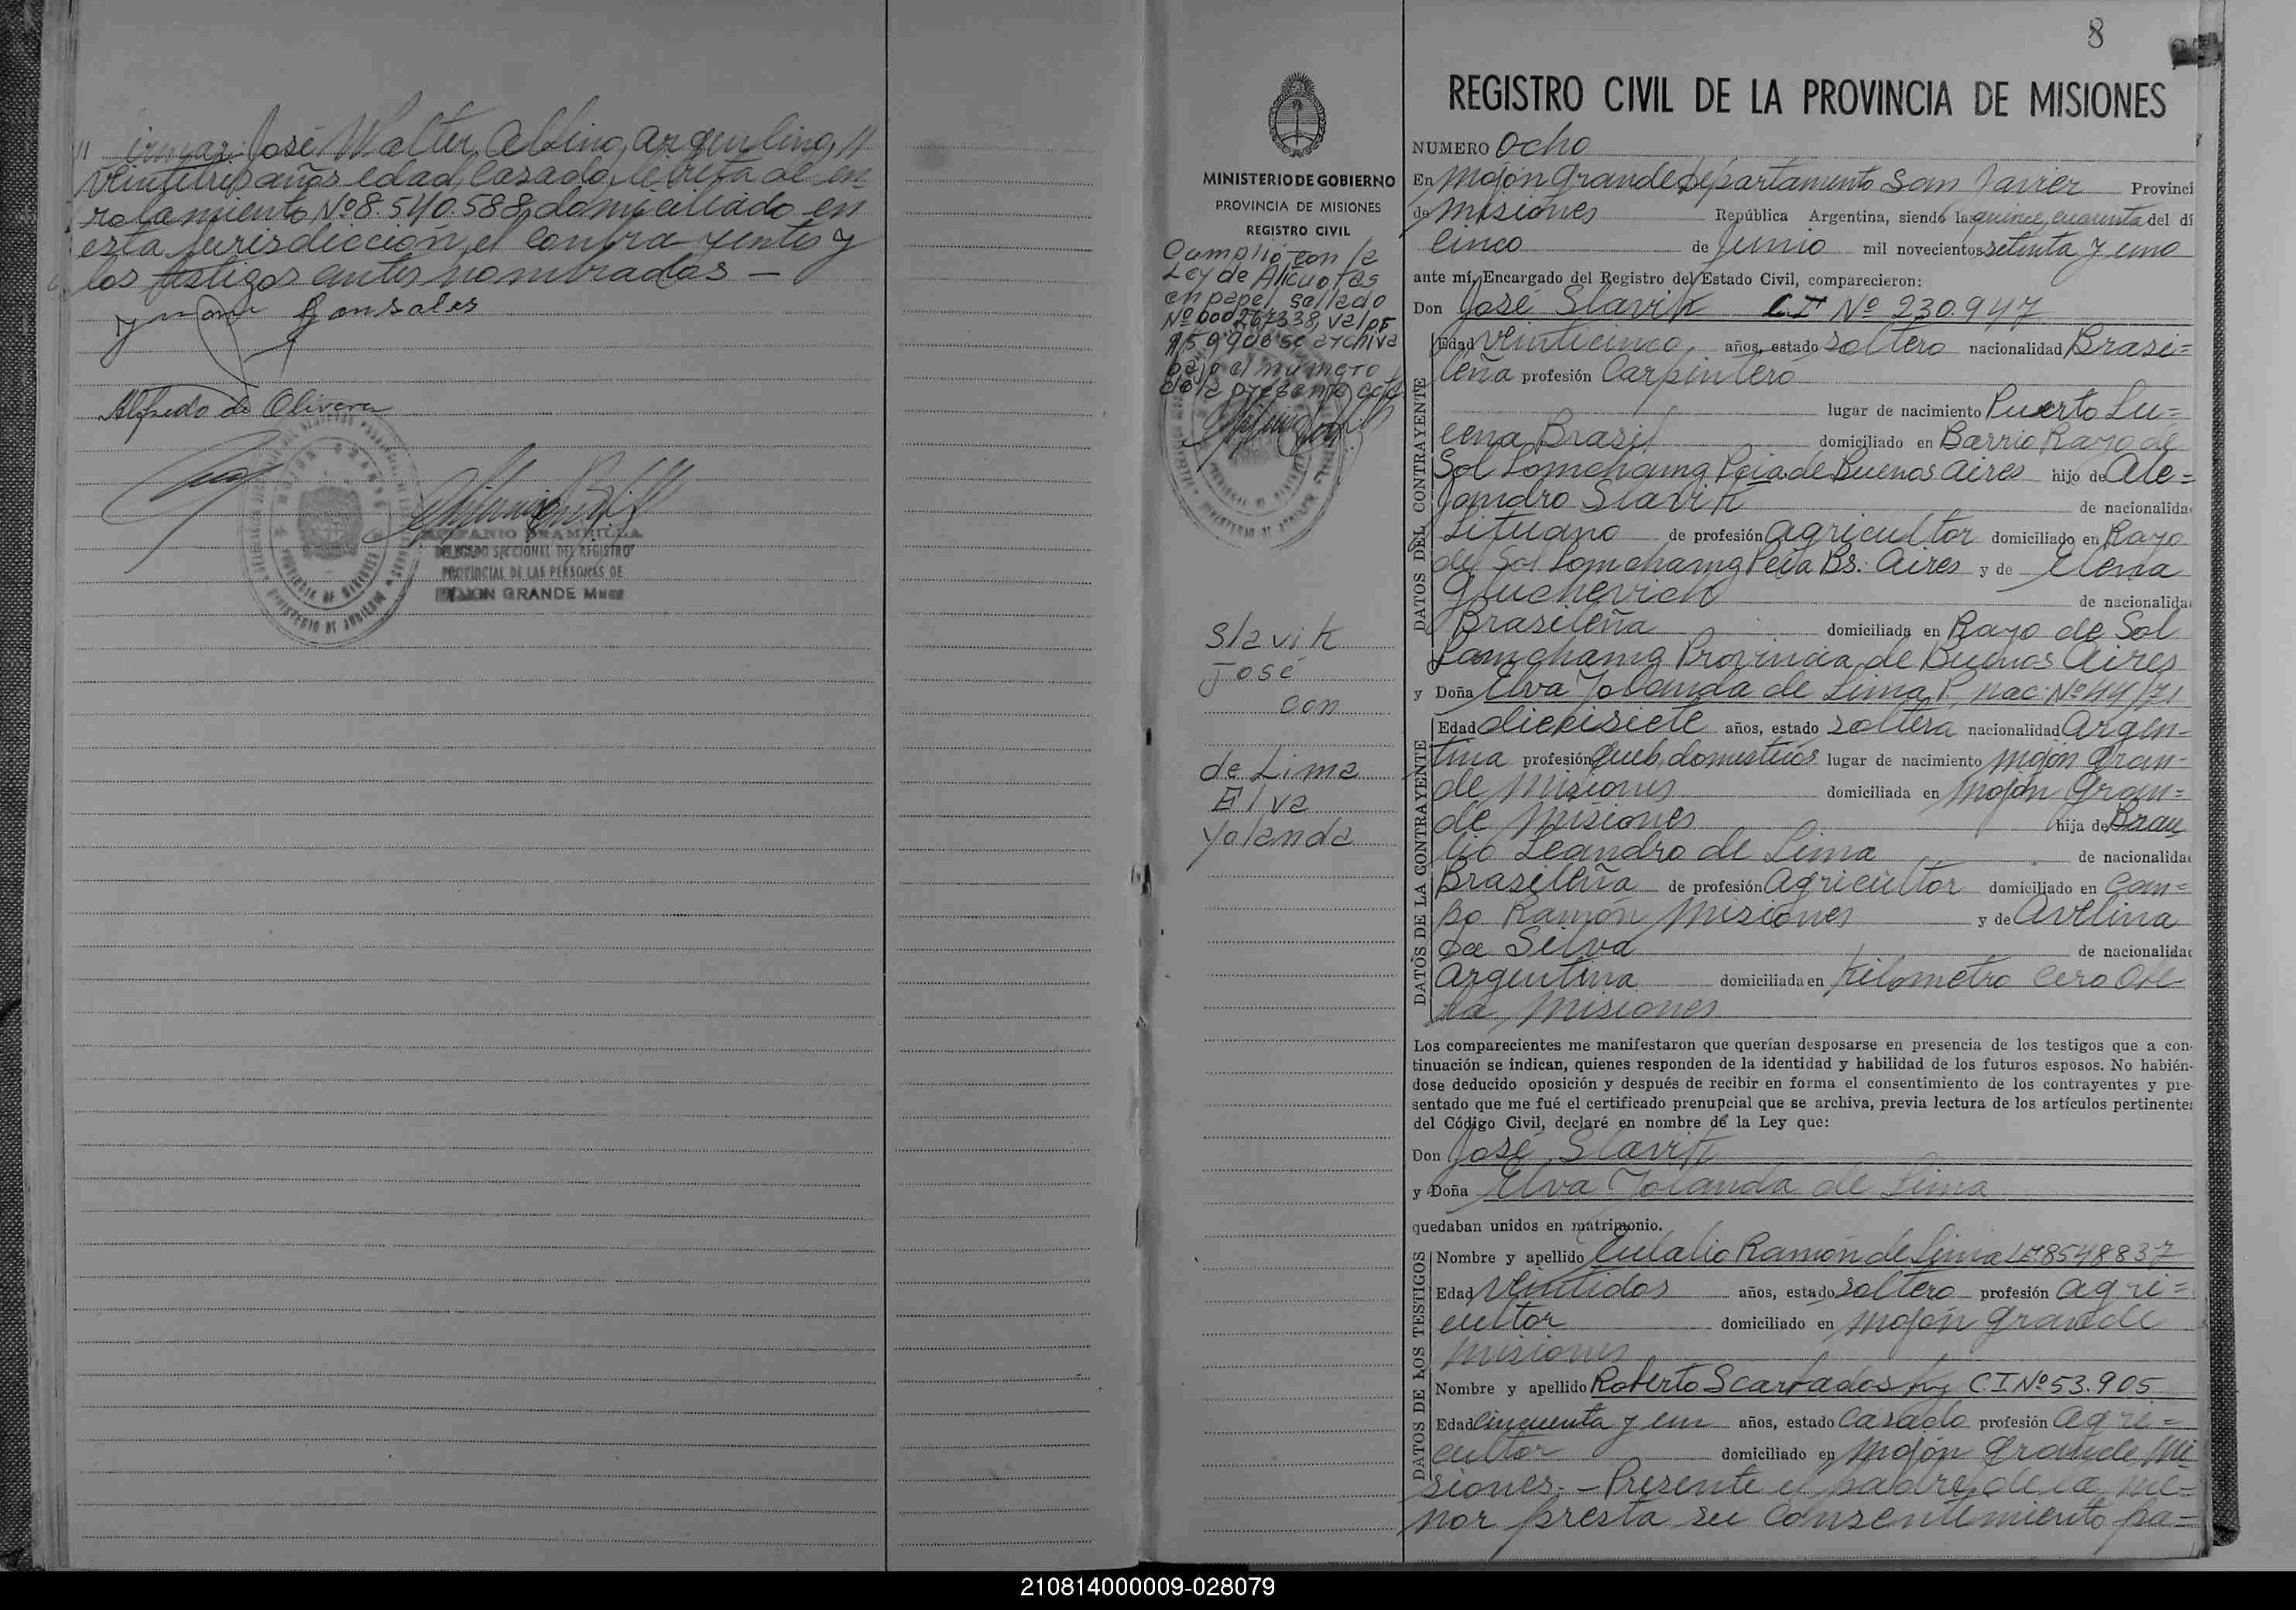 " irmar: José Walter Albino, argentino, "
veintitres años edad, Casado, libreta de en
rolamiento Nº 8.540.588, domiciliado en
esta Jurisdicción, el contrayente y
los testigos antes nombrados —
Gonsales
Alfredo de Olivera
EPIFANIO BRAMBILLA
DELEGADO SECCIONAL DEL REGISTRO
PROVINCIAL DE LAS PERSONAS DE
MOJON GRANDE Mnes
MINISTERIO DE GOBIERNO
PROVINCIA DE MISIONES
REGISTRO CIVIL
Cumplió con la
Ley de Alicuotas
en papel sellado
valor
se archiva
bajo el numero
de la presente acta
Slavik
José
con
de Lima
Elva
Yolanda
8
REGISTRO CIVIL DE LA PROVINCIA DE MISIONES
NUMERO Ocho
En Mojón Grande Departamento San Javier Provinci
de Misiones República Argentina, siendo las quince, cuarenta del dí
Cinco de Junio mil novecientos setenta y uno
ante mí, Encargado del Registro del Estado Civil, comparecieron:
Don José Slavik C.I Nº 230.947
DATOS DEL CONTRAYENTE
Edad Veinticinco, años, estado Soltero nacionalidad Brasi=
leña profesión Carpintero
lugar de nacimiento Puerto Lu=
cena Brasil domiciliado en Barrio Rayo de
Sol Lomchamg Pcia de Buenos Aires hijo de Ale=
jandro Slavik de nacionalida
Lituano de profesión Agricultor domiciliado en Rayo
de Sol Lomchamg Pcia Bs: Aires y de Elena
Gluchevich de nacionalida
Brasileña domiciliada en Rayo de Sol
Lomchamg Provincia de Buenos Aires
y Doña Elva Yolanda de Lima P, nac: Nº 44/71
DATOS DE LA CONTRAYENTE
Edad diecisiete años, estado soltera nacionalidad Argen-
tina profesión queh, domesticos lugar de nacimiento Mojón Gran-
de Misiones domiciliada en Mojón Gran=
de Misiones hija de Brau
lio Leandro de Lima de nacionalida
Brasileña de profesión Agricultor domiciliado en Cam=
po Ramón Misiones y de Avelina
Da Silva de nacionalidad
Argentina domiciliada en Kilometro Cero Obe
ra, Misiones
Los comparecientes me manifestaron que querían desposarse en presencia de los testigos que a con-
tinuación se indican, quienes responden de la identidad y habilidad de los futuros esposos. No habién-
dose deducido oposición y después de recibir en forma el consentimiento de los contrayentes y pre-
sentado que me fué el certificado prenupcial que se archiva, previa lectura de los artículos pertinentes
del Código Civil, declaré en nombre de la Ley que:
Don José Slavik
y Doña Elva Yolanda de Lima
quedaban unidos en matrimonio.
DATOS DE LOS TESTIGOS
Nombre y apellido Eulalio Ramón de Lima L.E. 8548837
Edad Veintidos años, estado soltero profesión Agri=
cultor domiciliado en Mojón Grande
Misiones
Nombre y apellido Roberto C.I Nº 53.905
Edad cincuenta y un años, estado Casado profesión Agri=
cultor domiciliado en Mojón Grande Mi
siones. - Presente el padre de la me=
nor presta su Consentimiento pa=
210814000009-028079